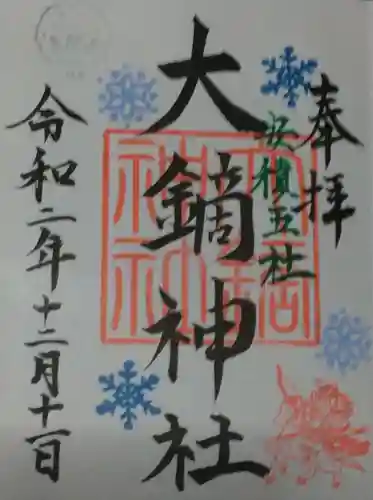 奉拝
安積五社
大鏑神社
令和二年十二月十一日